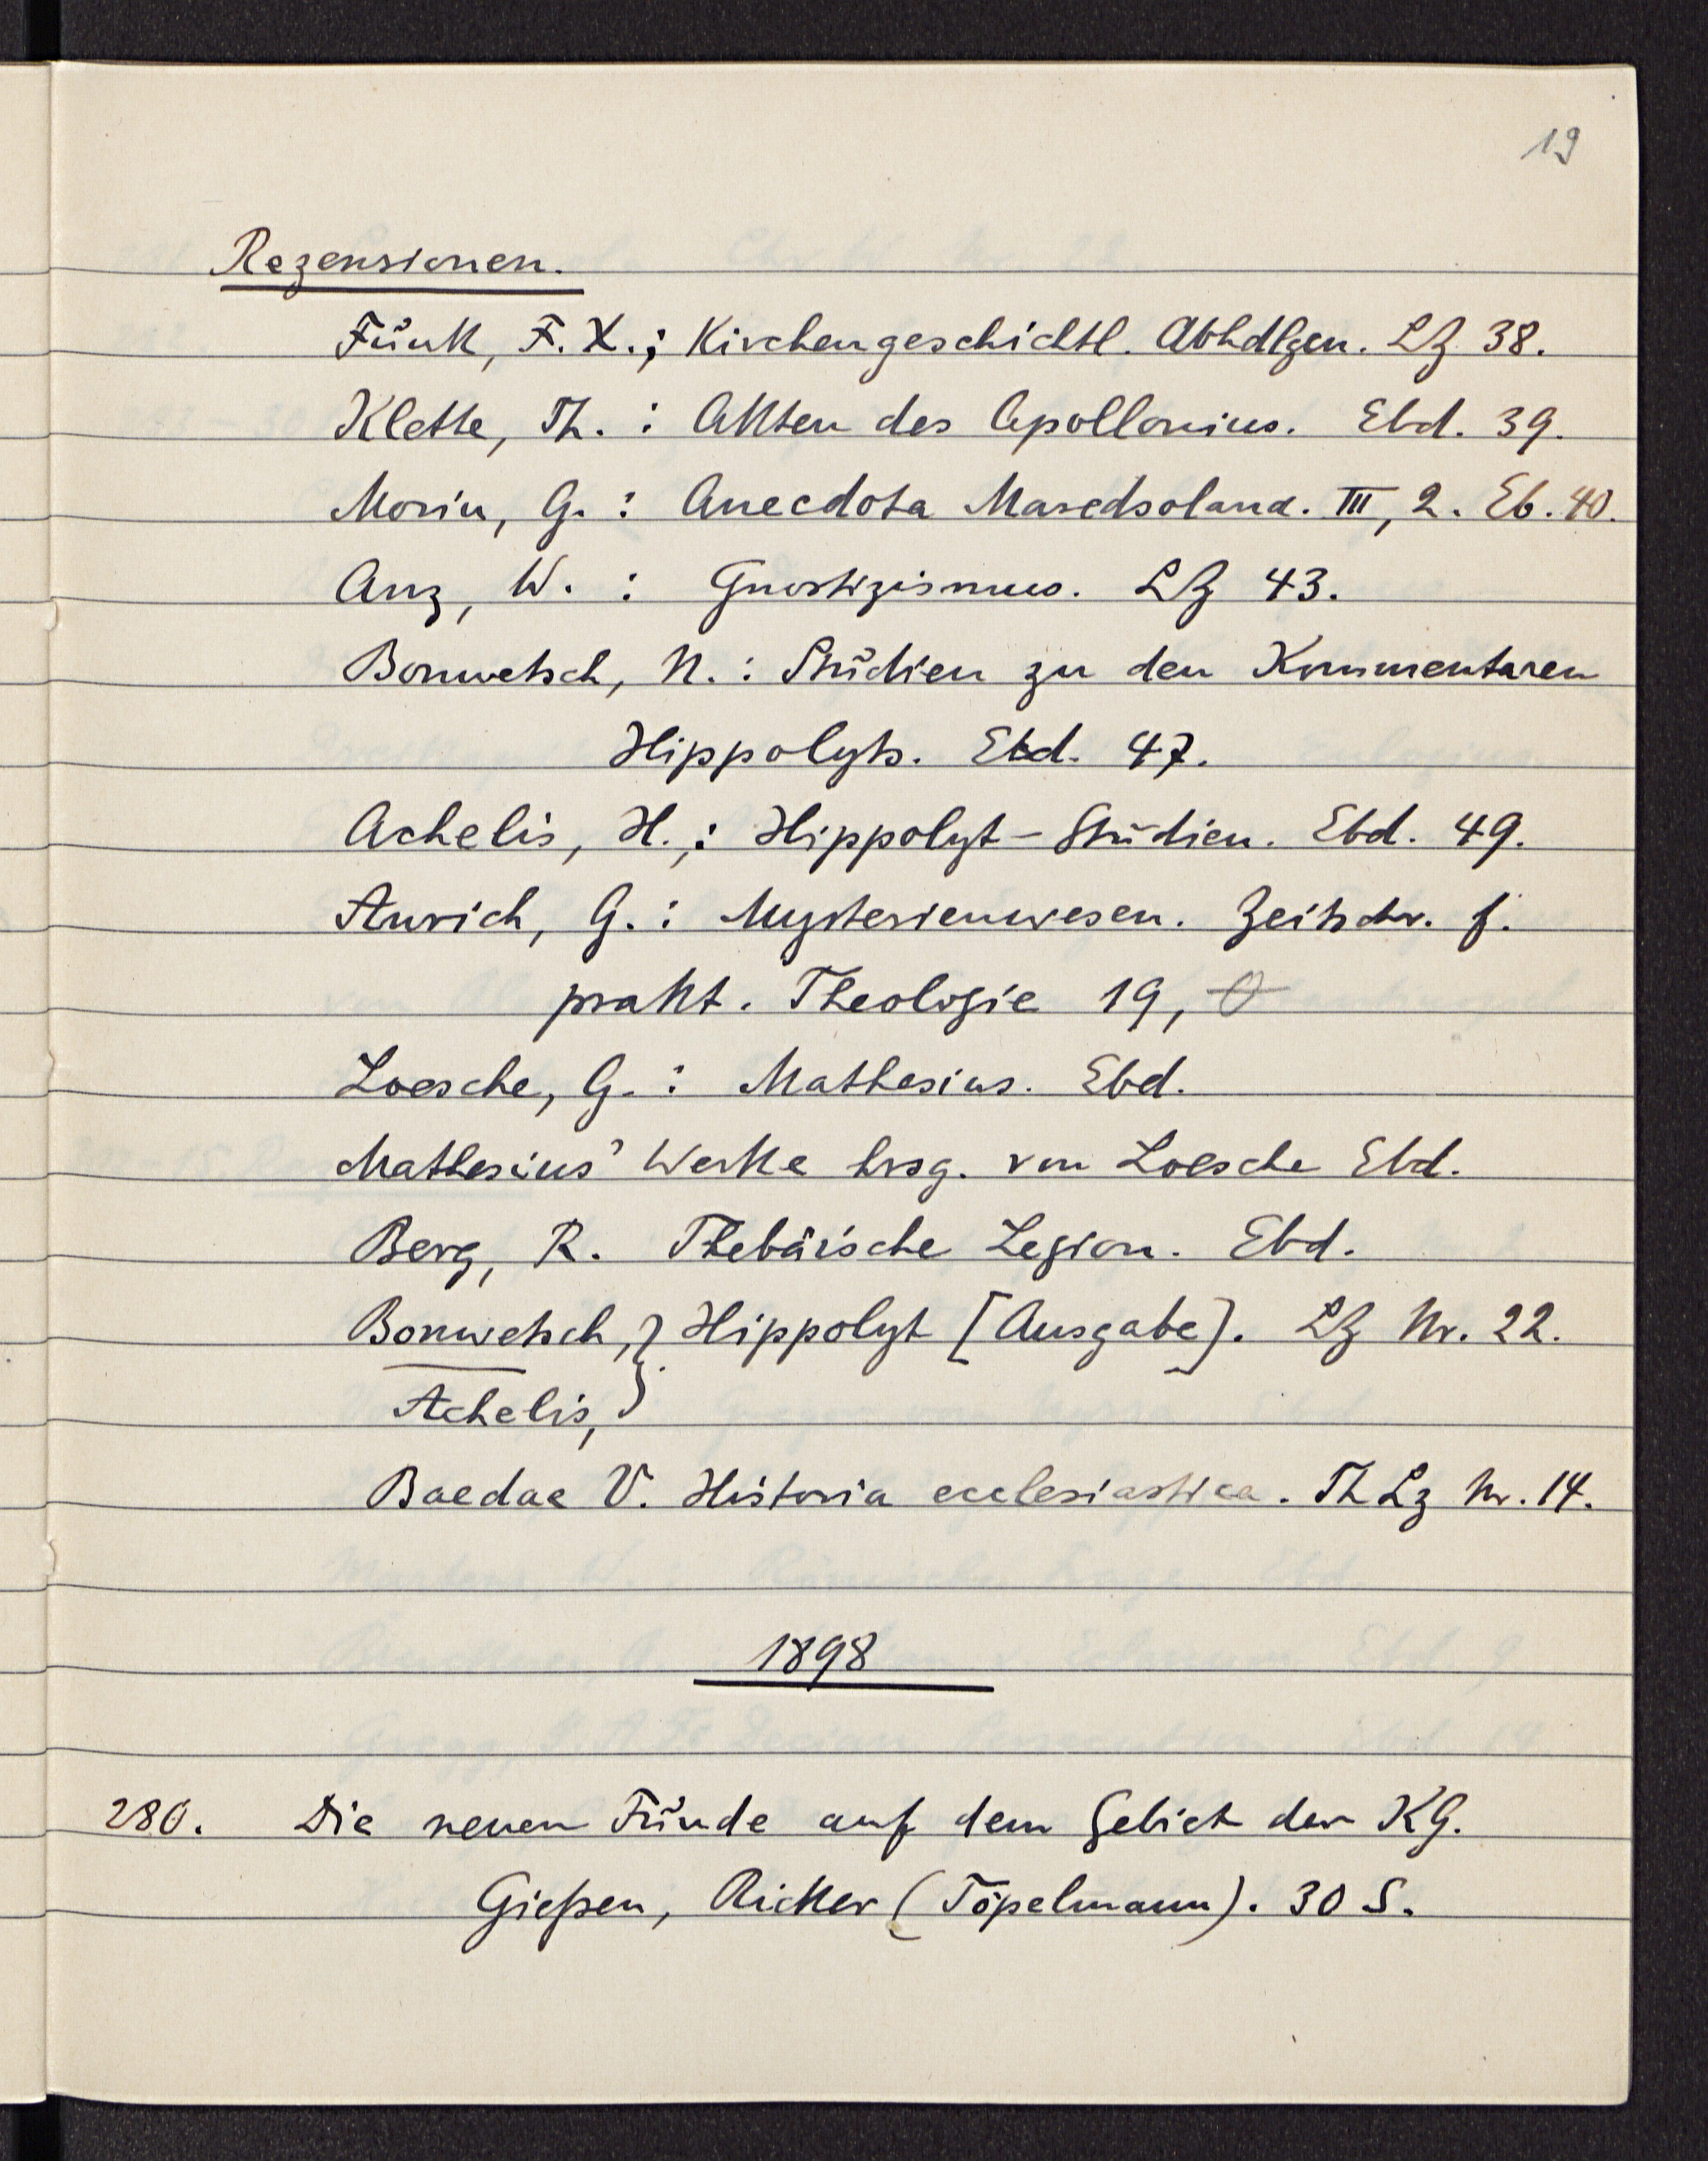 19
Rezensionen.
Funk, F. X.; Kirchengeschichtl. Abhdlgen. LZ 38.
Klette, Th. : Akten des Apollonius. Ebd. 39.
Morin, G. : Anecdota Maredsolana. III, 2. Eb. 40.
Anz, W. : Gnostizismus. LZ 43.
Bonwetsch, N. : Studien zu den Kommentaren
Hippolyts. Ebd. 47.
Achelis, H. : Hippolyt-Studien. Ebd. 49.
Anrich, G. : Mysterienwesen. Zeitschr. f.
prakt. Theologie 19,
Loesche, G. : Mathesius. Ebd.
Mathesius' Werke hrsg. von Loesche Ebd.
Berg, R. Thebäische Legion. Ebd.
Bonwetsch, } Hippolyt [Ausgabe]. LZ Nr. 22.
Achelis,
Baedae V. Historia ecclesiastica. Th Lz Nr. 14.
1898
280. Die neuen Funde auf dem Gebiet der KG.
Gießen, Ricker (Töpelmann). 30 S.